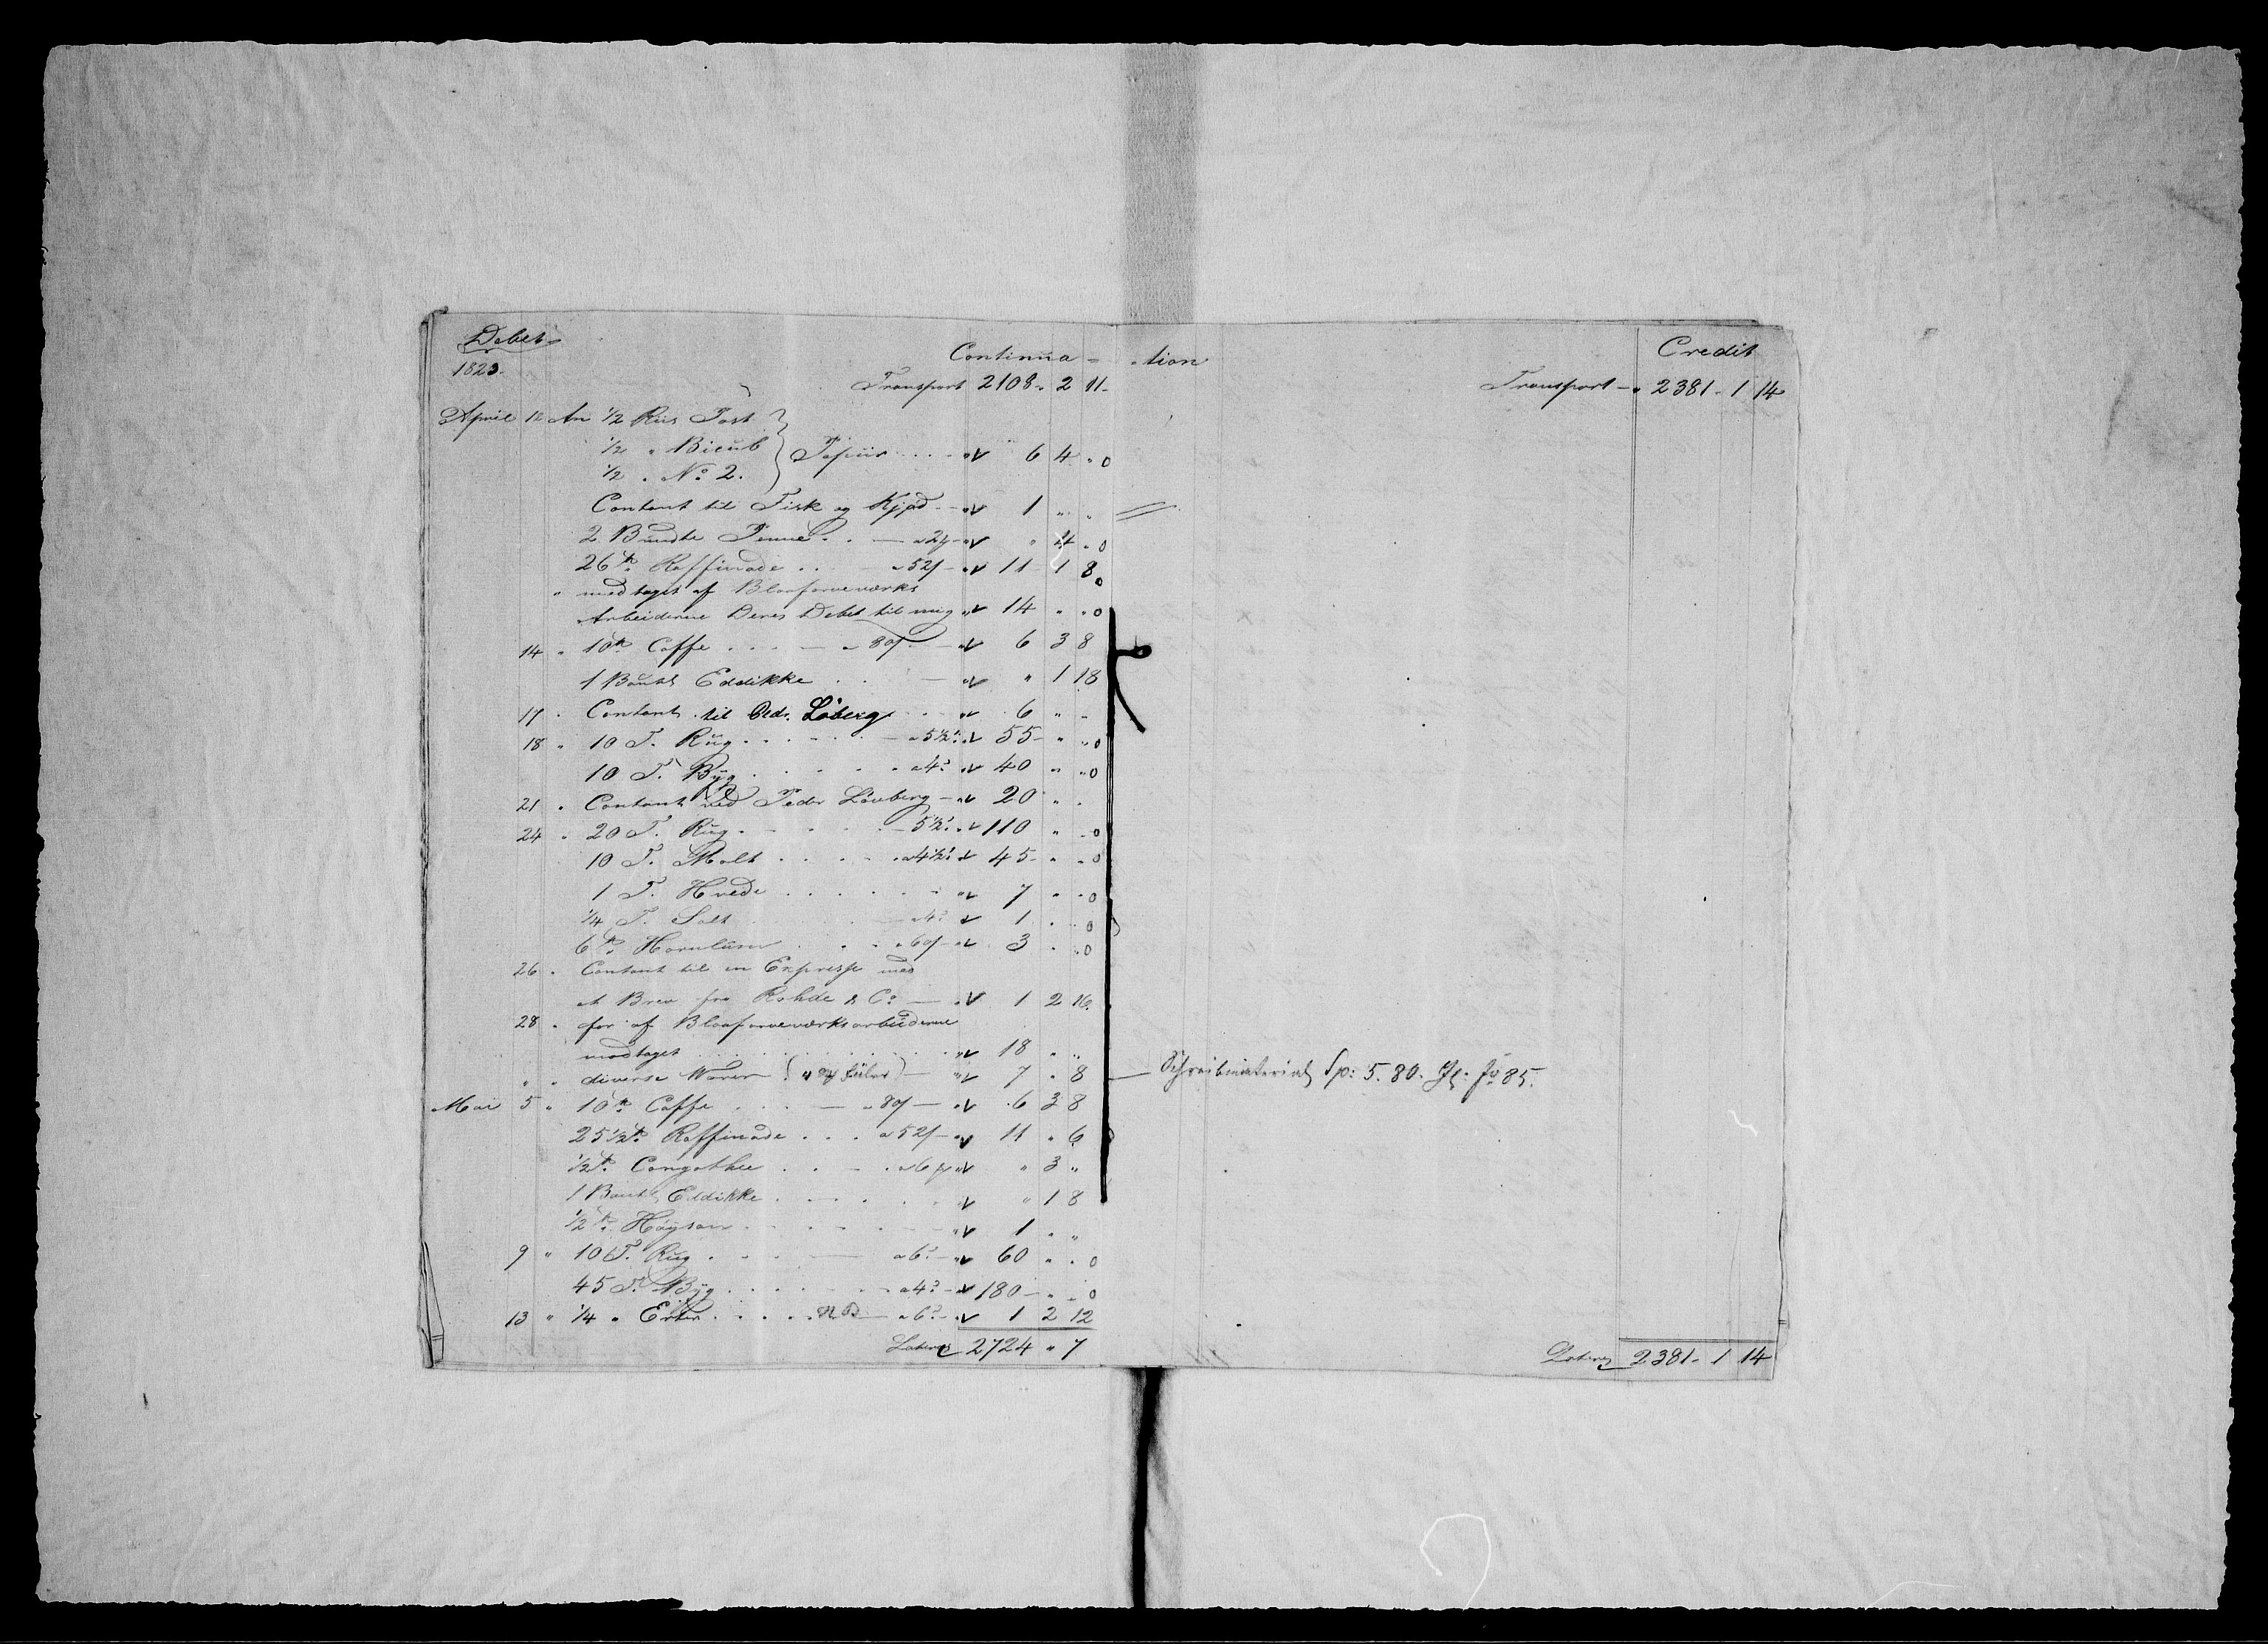 Debet
1823.
Continua-
Transport 2108 " 2 11
April 12 An 1/2 Riis Post
1/2 " Bicub } Papiir . . . 6 4 " 0
1/2 " No 2.
Contant til Fisk og Kjød - 1 " "
2 Bundte Penne . . a 2 - " 4 " 0
26 ℔ Raffinade . . a 52 - 11 1 8 0
" modtaget af Blaafarveværks
Arbeiderne Deres Debet til mig 14 " " 0
14 " 10 ℔ Caffe . . . - a 80 - 6 3 8
1 Bout Eddikke . . - " 1 18
17 " Contant til Pedr. Löberg . . 6 " "
18 " 10 T. Rüg . . . . . - a 5 1/2 55 " " 0
10 T. Byg . . . . . a 4 40 " " 0
21 " Contant ved Peder Lövberg - 20 " "
24 " 20 T. Rüg . . . . - 5 1/2 110 " " 0
10 T. Malt . . . . . a 4 1/2 45 - " " 0
1 T. Hvede . . . . . . 7 " " 0
1/4 T. Salt a 4 1 " " 0
6 ℔ Hornlüm . . . a 60 3 " " 0
26 " Contant til en Expresse med
et Brev fra Rohde & Co - 1 2 16
28 " for af Blaafarveværksarbeiderne
modtaget . . . . . . 18 " "
" " diverse Warer - 7 " 8
Mai 5 " 10 ℔ Caffe . . . - a 80 - 6 3 8
25 1/2 ℔ Raffinade . . . a 52 - 11 " 6
1/2 ℔ Congothee . . . a 6 " 3 "
1 Bout Eddikke . . . . " 1 8
1/2 ℔ Haysan . . . . 1 " "
9 " 10 T. Rüg . . . - a 6 - 60 " " 0
45 T. Byg . . . . . a 4 - 180 - " " 0
13 " 1/4 " Erter . . . . . NB - a 6 - 1 2 12
Lateris 2724 " 7
-tion
Credit
Transport - 2381 - 1 14
Schreibmaterial Sp: 5. 80.
Lateris 2381 - 1 14